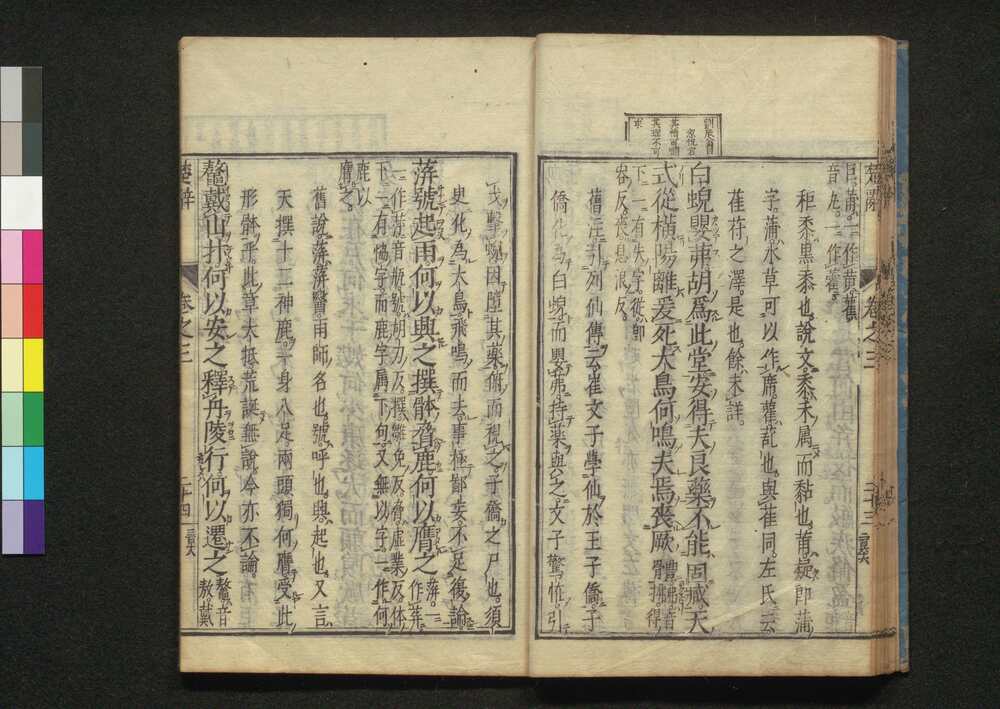 楚辭
卷之三
二十三
巨莆一作黄雚
音丸一作雚
秬黍黑黍也說文黍禾属而黏也莆疑即蒲
字蒲水草可以作席雚葦也與萑同左氏云
萑苻之澤是也餘未詳
白蜺嬰茀胡爲此堂安得夫良藥不能固臧天
式從横陽離爰死大鳥何鳴夫焉喪厥體
下一有夫字從即
容反喪息浪反
舊注引列仙傳云崔文子學仙於王子僑子
僑化為白蜺而嬰茀持藥與之文子驚怪引
戈擊蜺因墮其藥俯而視之子僑之尸也須
臾化為大鳥飛鳴而去事極鄙妄不足復論
蓱號起雨何以興之撰體脅鹿何以膺之
蓱一作萍
一作荓音瓶號胡刀反撰雛免反脅虛業反体
下一有協字而鹿字屬下句又無以字一作何
鹿以
膺之
舊說蓱蓱翳雨師名也號呼也興起也又言
天撰十二神鹿一身八足兩頭獨何膺受此
形體乎此章大抵荒誕無說今亦不論
鼇戴山抃何以安之釋舟陵行何以遷之
鼇音
敖戴
楚辭
卷之三
二十四